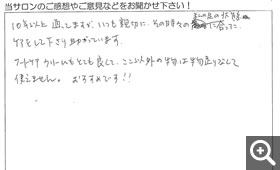 当サロンのご感想やご意見などをお聞かせ下さい！
私の足の状態
10年以上通ってますが、いつも親切に、その時々の に合った
ケアをして下さり助かっています。
フートケアクリームもとても良くて、ここ以外の物は物足りなくて
使えません。 おすすめです!!